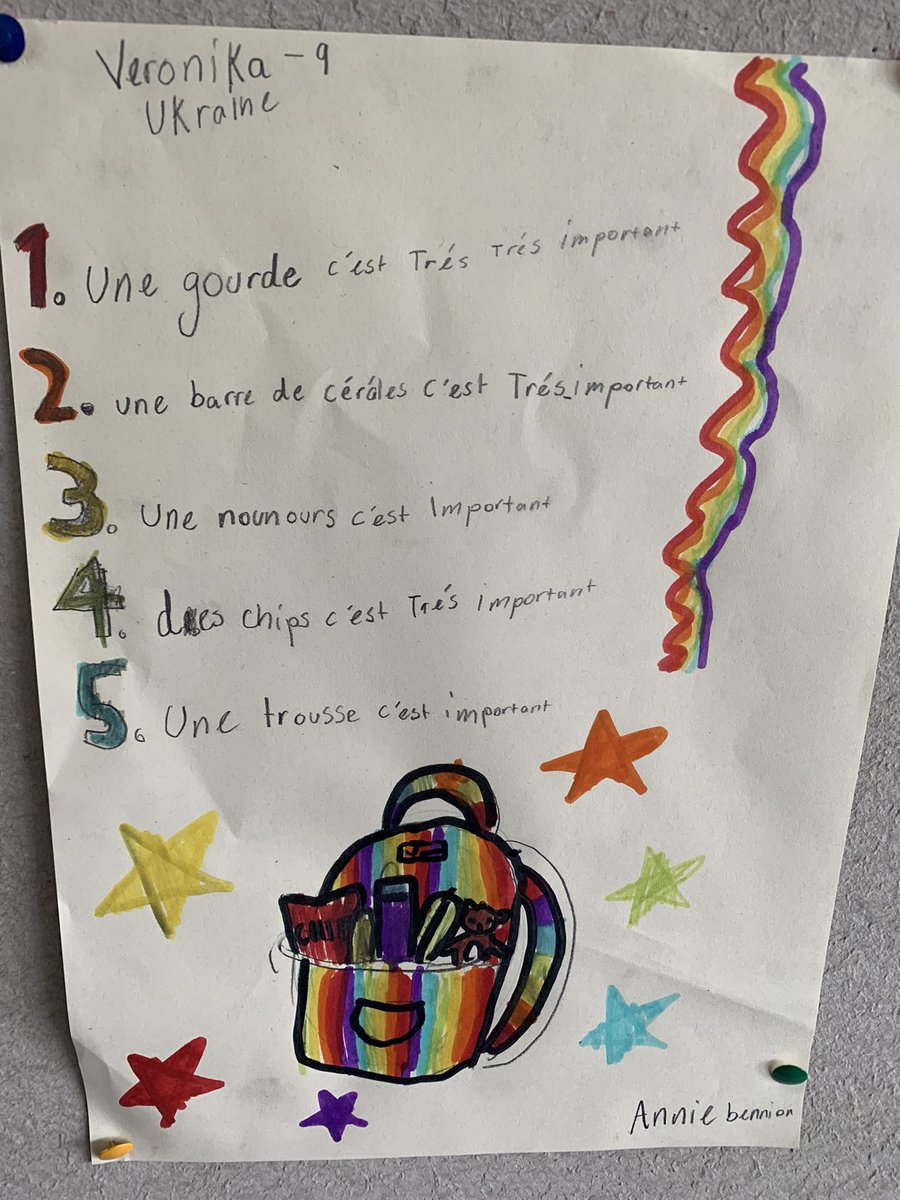 Veronika - 9
Ukraine
1. Une gourde c'est Trés Trés important
2. une barre de céráles c'est Trés important
3. Une nounours c'est Important
4. des chips c'est Trés important
5. Une trousse c'est important
CHIP
Annie bennion